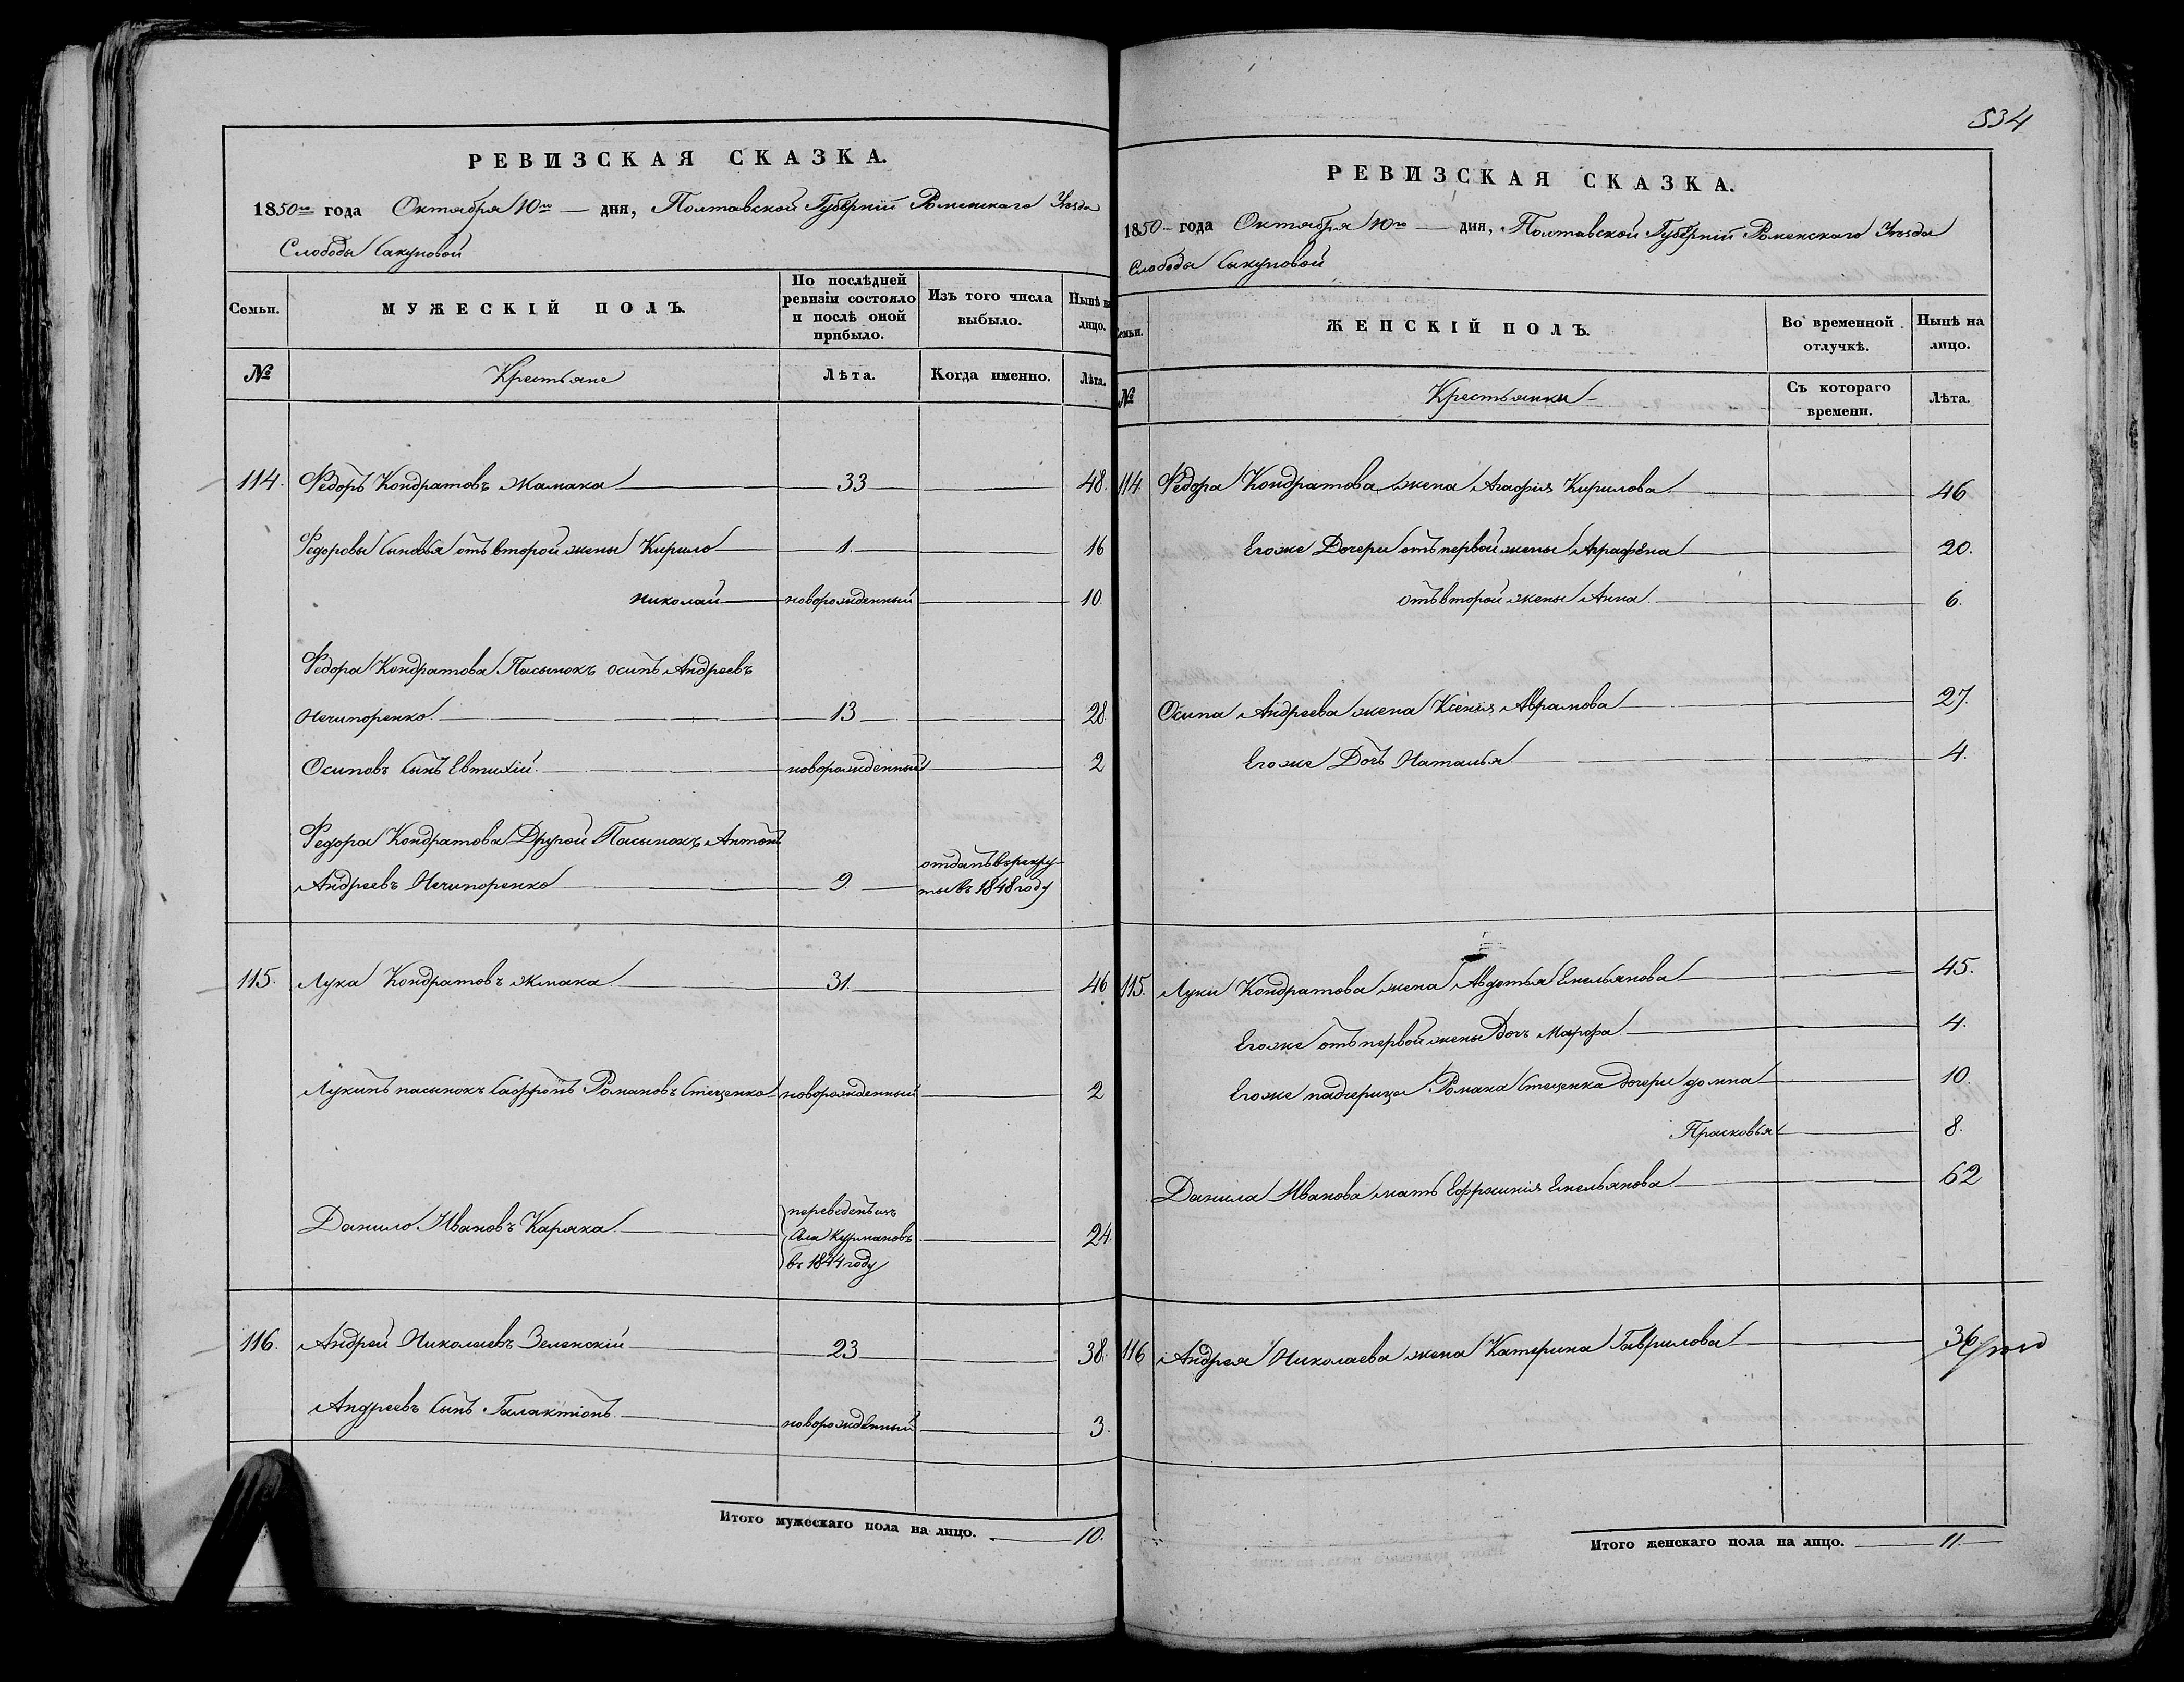 РЕВИЗСКАЯ СКАЗКА.
1850го года Октября 10го дня, Полтавской Губерніи Роменскаго Уѣзда
Слободы Сакуновой
Семьи.
МУЖЕСКІЙ ПОЛЪ.
По послѣдней ревизіи состояло и послѣ оной прибыло.
Изъ того числа выбыло.
Нынѣ на лицо.
№
Крестьяне
Лѣта.
Когда именно.
Лѣта.
114. Федоръ Кондратовъ Жмака 33 48.
Федоровы Сыновья отъ второй жены Кирило 1. 16
Николай новорожденный 10.
Федора Кондратова Пасынокъ Осипъ Андреевъ
Нечипоренко 13 28.
Осиповъ Сынъ Евтихій новорожденный 2
Федора Кондратова Другой Пасынокъ Антонъ
Андреевъ Нечипоренко 9. отданъ въ рекру-
ты въ 1848 году
115. Лука Кондратовъ Жмака 31. 46
Лукинъ пасынокъ Сафронъ Романовъ Стеценко новорожденный 2
Данило Ивановъ Каряка переведенъ изъ
Села Курмановъ
въ 1844 году 24.
116. Андрей Николаевъ Зеленскій 23 38.
Андреевъ Сынъ Галактіонъ новорожденный 3.
Итого мужескаго пола на лицо. 10.
534
РЕВИЗСКАЯ СКАЗКА.
1850 года Октября 10го дня, Полтавской Губерніи Роменскаго Уѣзда
Слободы Сакуновой
Семьи.
ЖЕНСКІЙ ПОЛЪ.
Во временной отлучкѣ.
Нынѣ на лицо.
№
Крестьянки
Съ котораго времени.
Лѣта.
114 Федора Кондратова жена Агафія Кирилова 46
Егоже Дочери отъ первой жены Аграфена 20.
отъ второй жены Анна 6.
Осипа Андреева жена Ксенія Аврамова 27.
Егоже Дочь Наталья 4.
115. Луки Кондратова жена Авдотья Емельянова 45.
Егоже отъ первой жены Дочь Марфа 4.
Егоже падчерицы Романа Стеценка дочери Домна 10.
Прасковья 8.
Данила Иванова мать Ефросинія Емельянова 62
116 Андрея Николаева жена Катерина Гаврилова 36
Итого женскаго пола на лицо. 11.